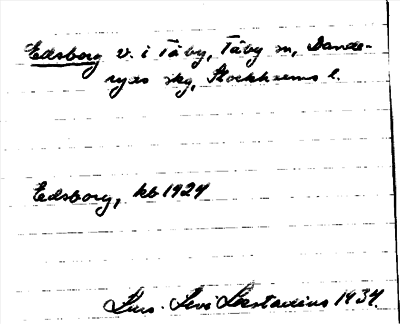 Edsborg v. i Täby, Täby sn, Dande-
ryds skg, Stockholms l.
Edsborg, kb 1924
Levi 1934